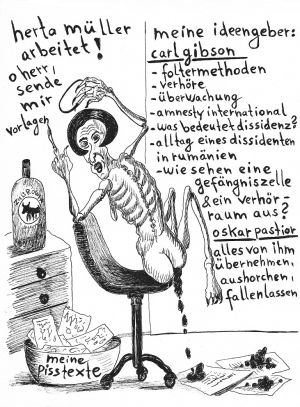 herta müller
arbeitet!
o herr,
sende
mir
vorlagen
meine ideengeber:
carl gibson
-foltermethoden
-verhöre
-überwachung
-amnesty international
-was bedeutet dissidenz?
-alltag eines dissidenten
in rumänien
-wie sehen eine
gefängniszelle
& ein verhör-
raum aus?
oskar pastior
alles von ihm
übernehmen,
aushorchen,
fallenlassen
meine
pisstexte